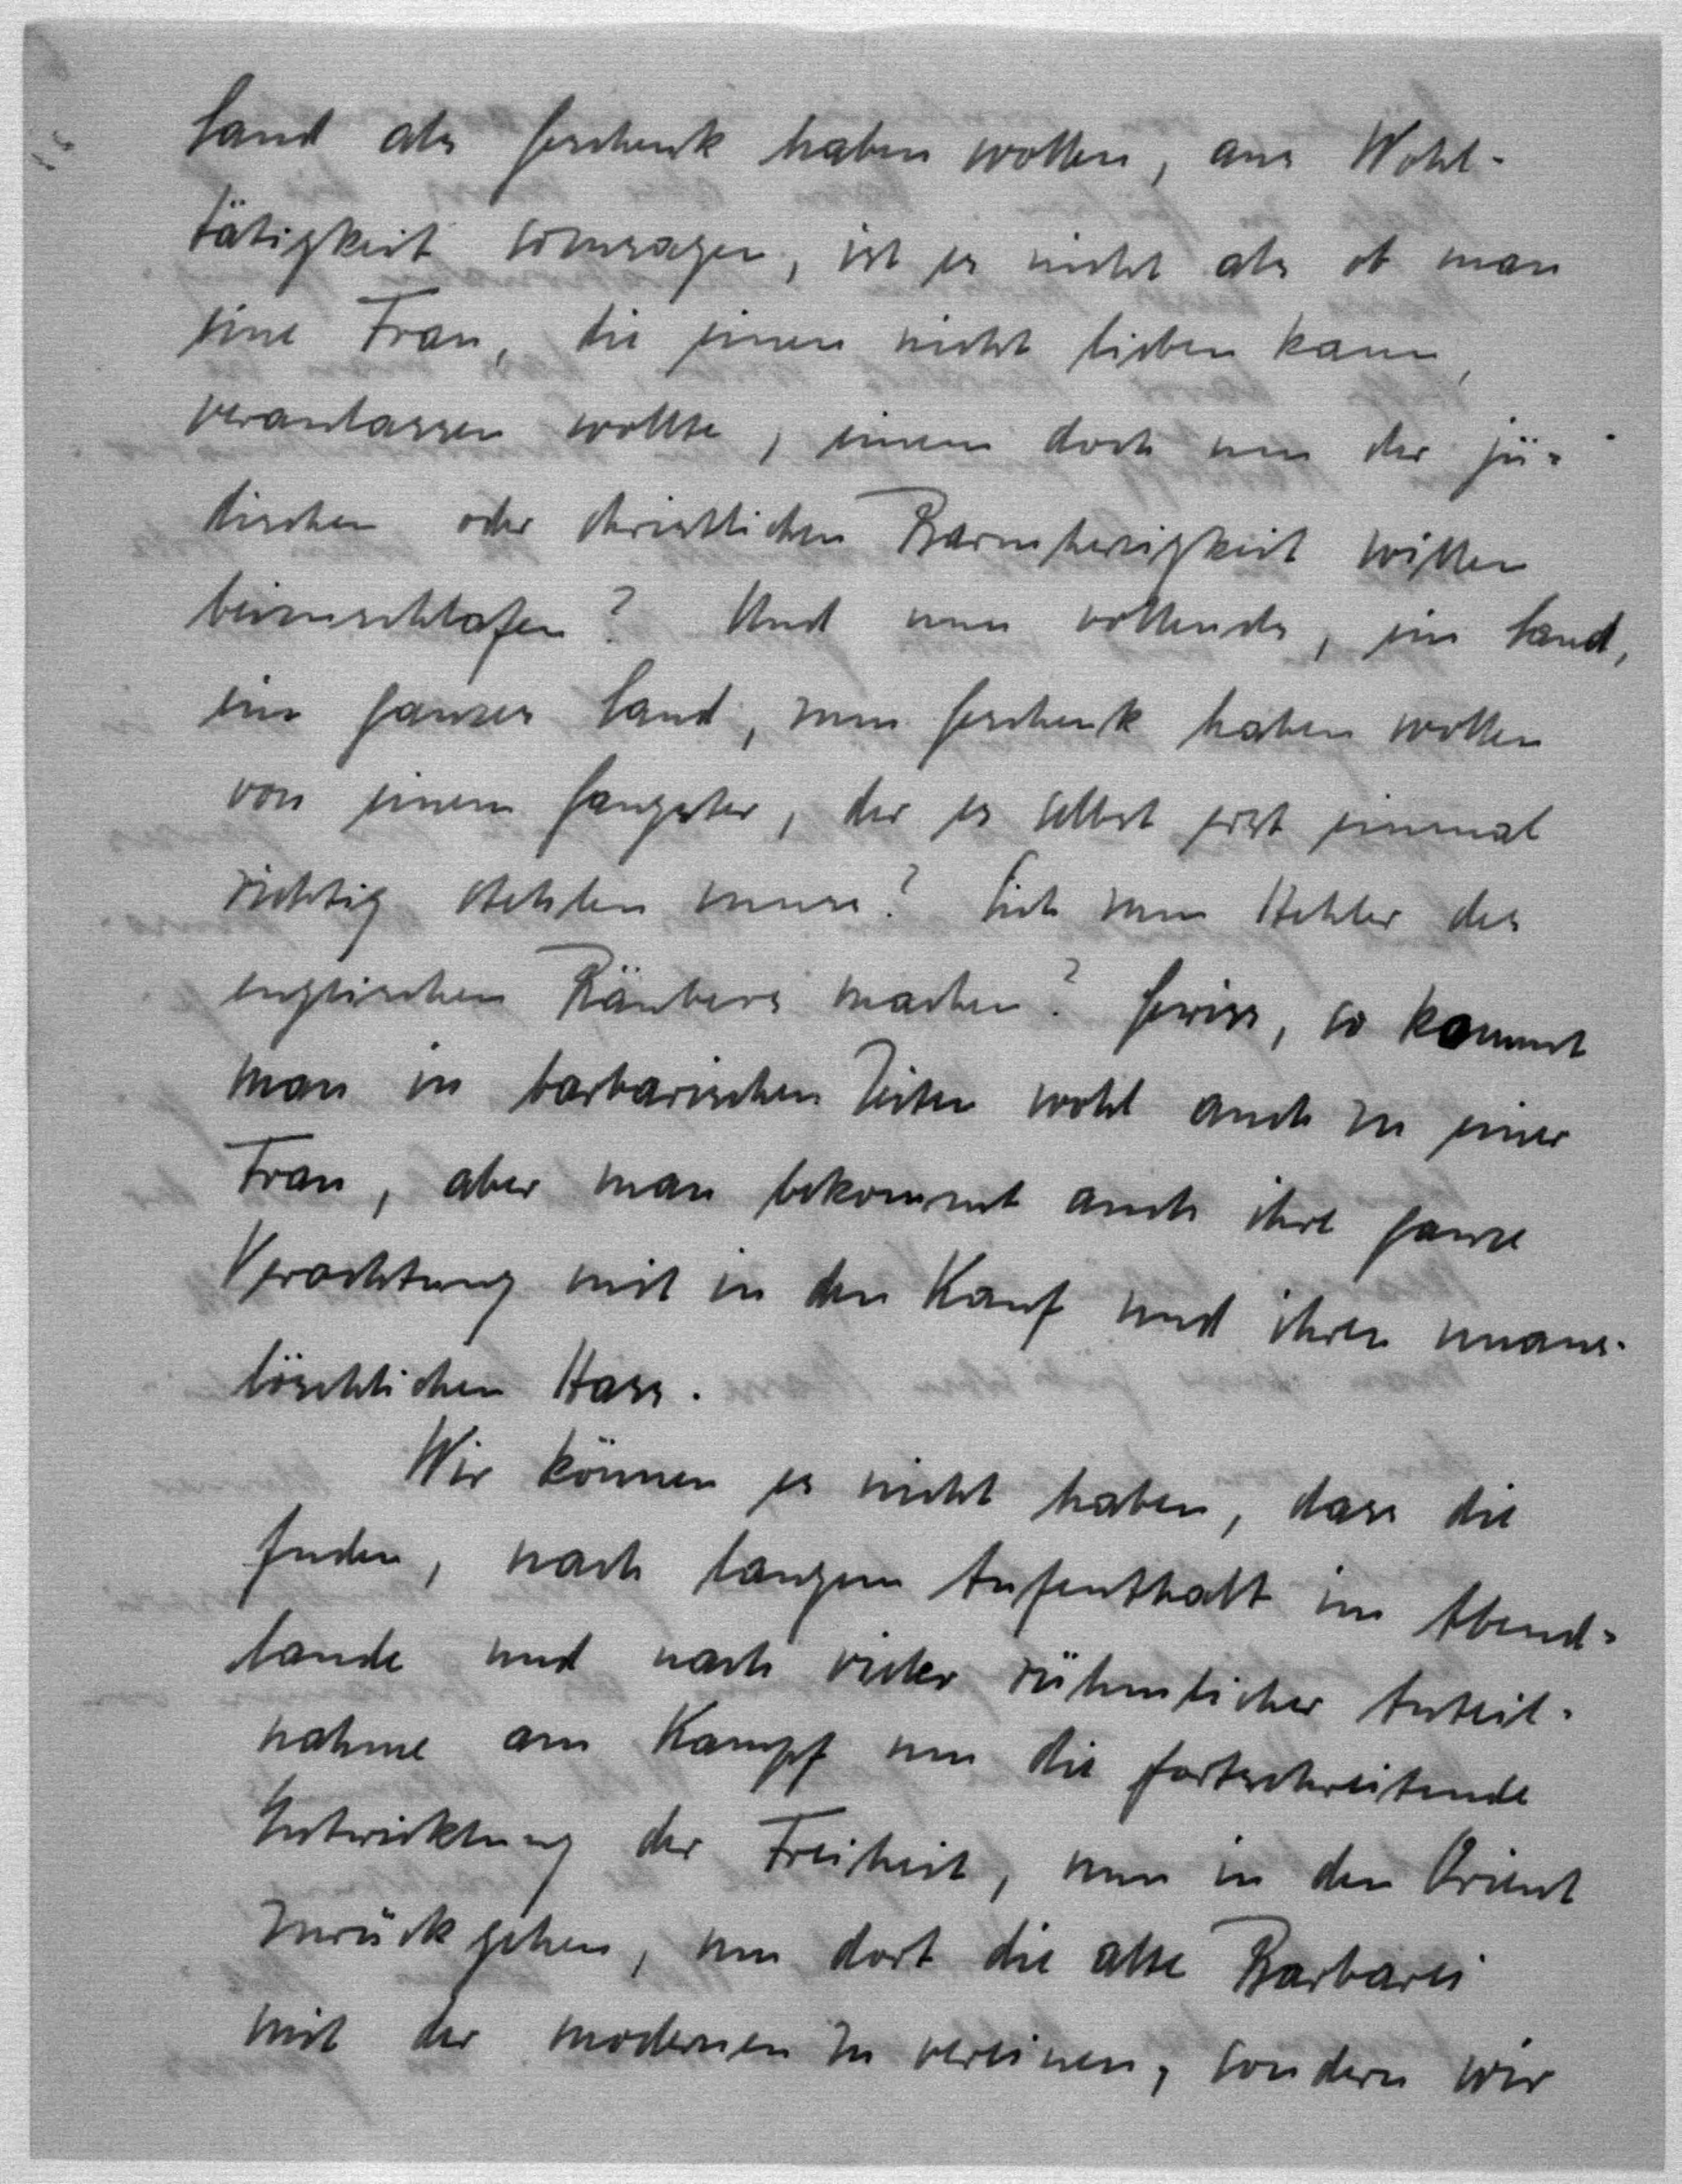 Land als Geschenk haben wollen, aus Wohl-
tätigkeit sozusagen, ist es nicht als ob man
eine Frau, die einen nicht lieben kann,
veranlassen wollte, einem doch um der jü-
dischen oder christlichen Barmherzigkeit willen
beizuschlafen? Und nun vollends, ein Land,
ein ganzes Land, zum Geschenk haben wollen
von einem Gangster, der es selbst erst einmal
richtig stehlen muss? Sich zum Hehler des
englischen Räubers machen? Gewiss, so kommt
man in barbarischen Zeiten wohl auch zu einer
Frau, aber man bekommt auch ihre ganze
Verachtung mit in den Kauf und ihren unaus-
löschlichen Hass.
Wir können es nicht haben, dass die
Juden, nach langem Aufenthalt im Abend-
lande und nach vieler rühmlicher Anteil-
nahme am Kampf um die fortschreitende
Entwicklung der Freiheit, nun in den Orient
zurückgehen, um dort die alte Barbarei
mit der modernen zu vereinen, sondern wir